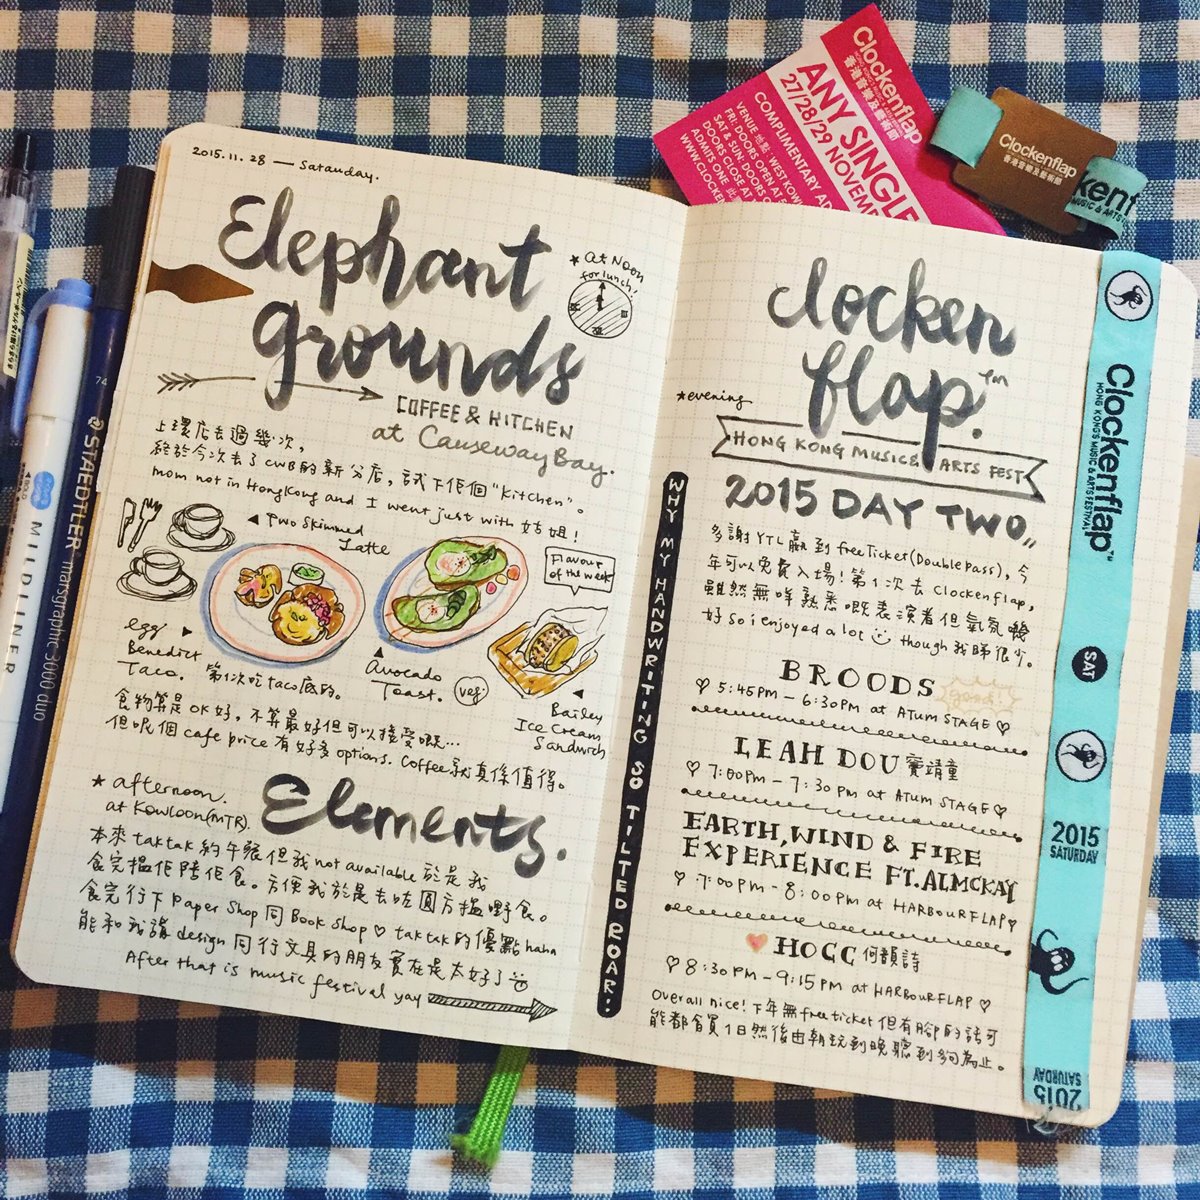 2015.11.28 — Satauday.
Elephant
grounds
★ at Noon
for lunch!
COFFEE & KITCHEN
at Causeway Bay.
上環店去過幾次，
終於今次去了CWB的新分店，試下佢個"Kitchen"。
mom not in HongKong and I went just with 姑姐！
◀ Two Skimmed
Latte
Flavour
of the week
egg ▶
Benedict
Taco. 第1次吃taco底的。
▲
Avocado
Toast. veg
▲
Bailey
Ice Cream
Sandwich
食物算是OK好，不算最好但可以接受嘅...
但呢個cafe price有好多options. Coffee就真係值得。
★ afternoon.
at Kowloon(MTR).
Elements.
本來taktak約午飯但我not available於是我
食完搵佢陪佢食。方便我於是去咗圓方搵嘢食。
食完行下Paper Shop同Book Shop ♡ taktak的優點haha
能和我講design同行文具的朋友實在是太好了
After that is music festival yay
WHY MY HANDWRITING SO TILTED ROAR!
Clocken
flap.™
★evening
HONG KONG MUSIC & ARTS FEST
2015 DAY TWO,,
多謝YTL贏到freeTicket(Double Pass)，今
年可以免費入場！第1次去Clockenflap，
雖然無咩熟悉嘅表演者但氣氛幾
好so i enjoyed a lot though我睇很少。
BROODS good!
♡ 5:45PM – 6:30PM at ATUM STAGE ♡
LEAH DOU 竇靖童
♡ 7:00PM – 7:30PM at ATUM STAGE ♡
EARTH, WIND & FIRE
EXPERIENCE FT. ALMCKAY
♡ 7:00PM – 8:00PM at HARBOURFLAP ♡
HOCC 何韻詩
♡ 8:30PM – 9:15PM at HARBOURFLAP ♡
Overall nice! 下年無free ticket但有腳的話可
能都會買1日然後由朝玩到晚聽到夠為止。
Clockenflap
香港音樂及藝術節
ANY SINGLE
27/28/29 NOVEMBE
COMPLIMENTARY A
VENUE 地點: WEST KOW
FRI: DOORS OPEN AT
SAT & SUN: DOORS O
DOORS CLOSE AT
ADMITS ONE
WWW.CLOCKEN
Clockenflap
香港音樂及藝術節
kenf
MUSIC & ARTS
Clockenflap™
HONG KONG'S MUSIC & ARTS FESTIVAL
SAT
2015
SATURDAY
2015
SATURDAY
MILDLINER
STAEDTLER marsgraphic 3000 duo
74